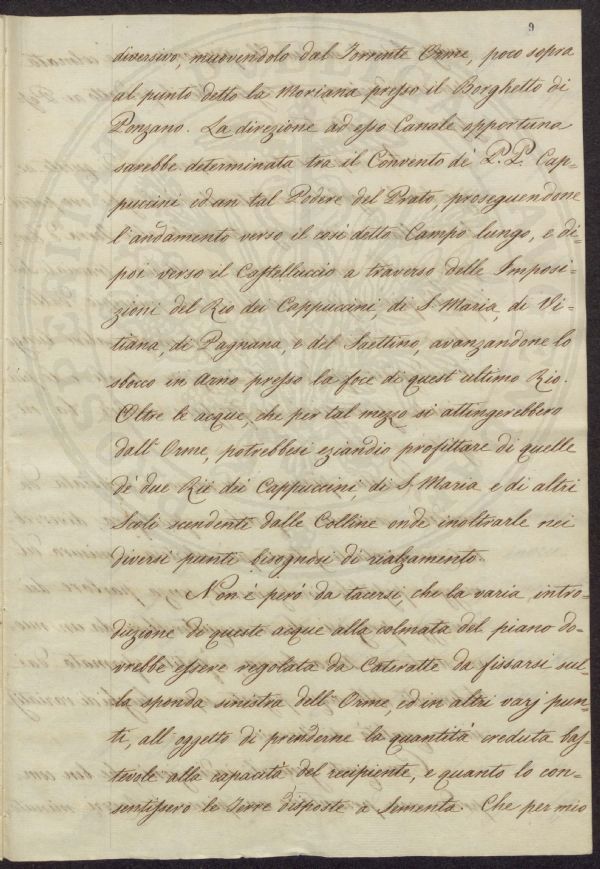 9
diversivo, muovendolo dal Torrente Orme, poco sopra
al punto detto la Moriana presso il Borghetto di
Ponzano. La direzione ad esso Canale opportuna
sarebbe determinata tra il Convento de' P.P. Cap-
puccini ed un tal Podere del Prato, proseguendone
l'andamento verso il così detto Campo lungo, e di-
poi verso il Castelluccio a traverso delle Imposi-
zioni del Rio dei Cappuccini, di S. Maria, di Vi-
tiana, di Pagnana, e del Saettino, avanzandone lo
sbocco in Arno presso la foce di quest'ultimo Rio.
Oltre le acque, che per tal mezzo si attingerebbero
dall'Orme, potrebbesi eziandio profittare di quelle
de' due Rii dei Cappuccini, di S. Maria e di altri
Scoli scendenti dalle Colline onde inoltrarle nei
diversi punti bisognosi di rialzamento.
Non è però da tacersi che la varia intro-
duzione di queste acque alla colmata del piano do-
vrebbe essere regolata da Cateratte da fissarsi sul-
la sponda sinistra dell'Orme, ed in altri varj pun-
ti, all'oggetto di prenderne la quantità creduta bas-
tevole alla capacità del recipiente, e quanto lo con-
sentissero le Terre disposte a Sementa. Che per mio